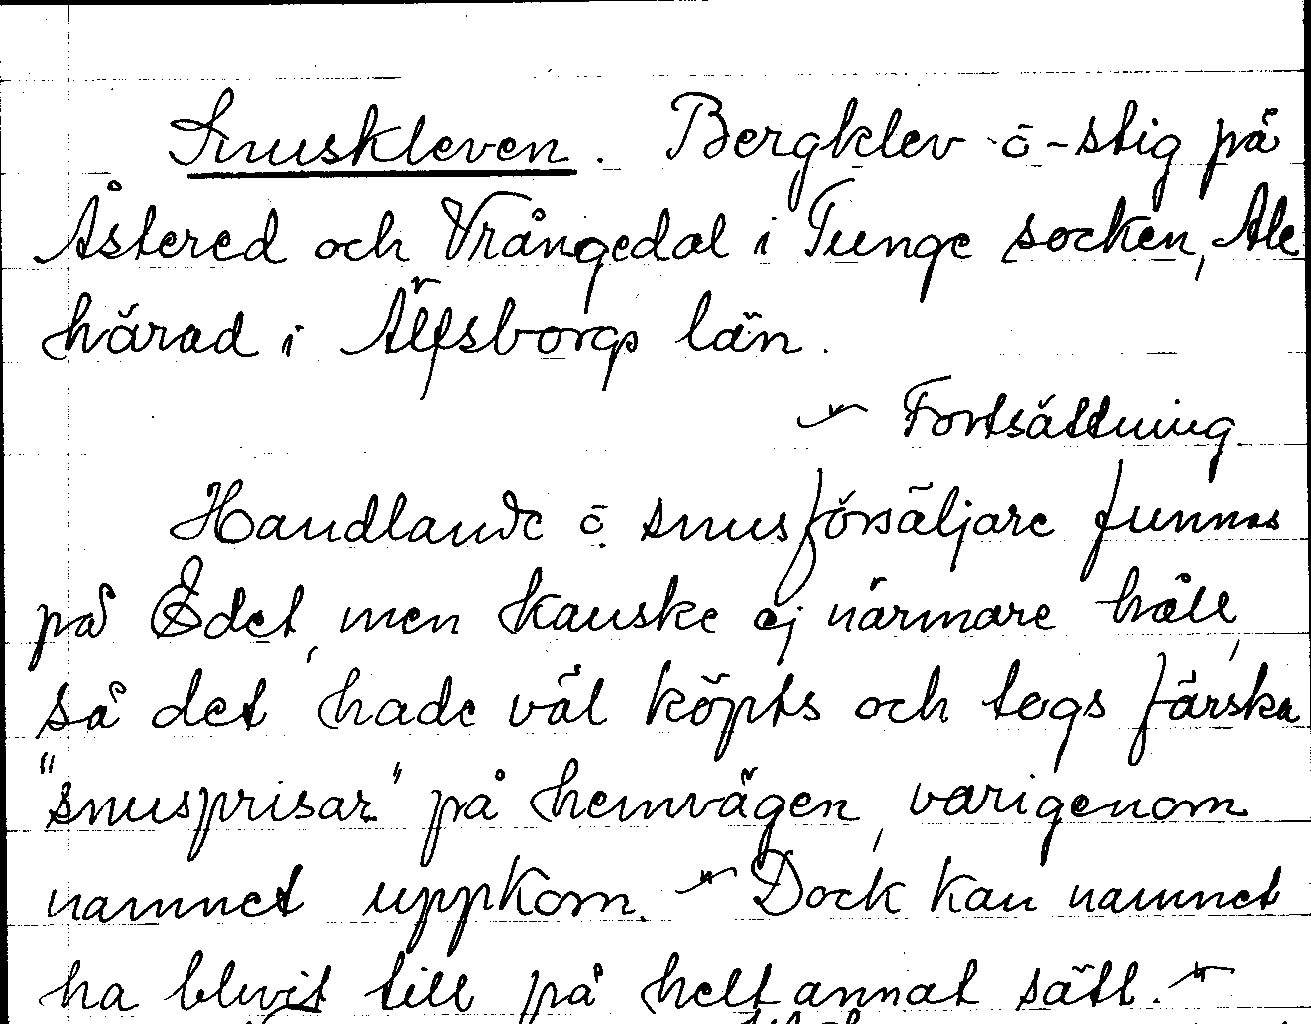 Snuskleven. Bergklev ō -stig på
Åstered och Vrångedal i Tunge socken, Ale
härad i Älfsborgs län.
Fortsättning
Handlande ō snusförsäljare funnos
på Edet, men kanske ej närmare håll,
så det hade väl köpts och togs färska
"snusprisar" på hemvägen, varigenom
namnet uppkom. Dock kan namnet
ha blivit till på helt annat sätt.